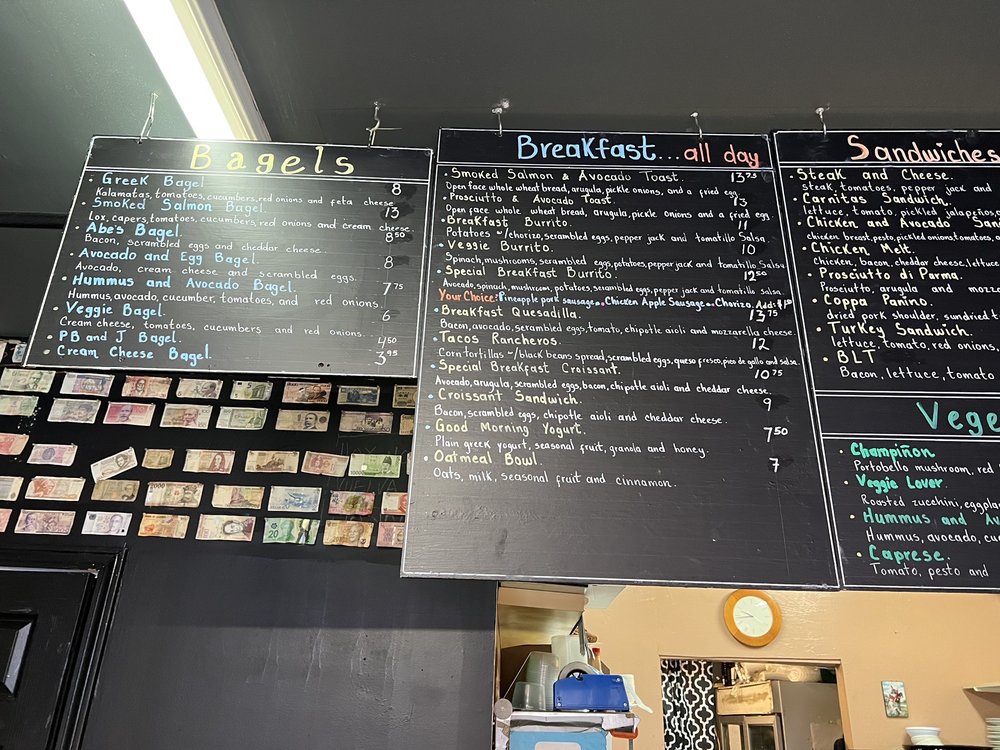 Bagels
• Greek Bagel 8
Kalamatas, tomatoes, cucumbers, red onions and feta cheese
• Smoked Salmon Bagel. 13
Lox, capers, tomatoes, cucumbers, red onions and cream cheese.
• Abe's Bagel. 8⁵⁰
Bacon, scrambled eggs and cheddar cheese.
• Avocado and Egg Bagel. 8
Avocado, cream cheese and scrambled eggs.
• Hummus and Avocado Bagel. 7⁷⁵
Hummus, avocado, cucumber, tomatoes, and red onions.
• Veggie Bagel. 6
Cream cheese, tomatoes, cucumbers and red onions.
• PB and J Bagel. 4⁵⁰
• Cream Cheese Bagel. 3⁹⁵
Breakfast... all day
• Smoked Salmon & Avocado Toast. 13⁷⁵
Open face whole wheat bread, arugula, pickle onions, and a fried egg.
• Prosciutto & Avocado Toast. 13
Open face whole wheat bread, arugula, pickle onions and a fried egg.
• Breakfast Burrito. 11
Potatoes w/chorizo, scrambled eggs, pepper jack and tomatillo Salsa.
• Veggie Burrito. 10
Spinach, mushrooms, scrambled eggs, potatoes, pepper jack and tomatillo Salsa
• Special Breakfast Burrito. 12⁵⁰
Avocado, spinach, mushroom, potatoes, scrambled eggs, pepper jack and tomatillo salsa.
Your Choice: Pineapple pork sausage.. Chicken Apple Sausage.. Chorizo. Add:
• Breakfast Quesadilla. 13⁷⁵
Bacon, avocado, scrambled eggs, tomato, chipotle aioli and mozzarella cheese.
• Tacos Rancheros. 12
Corn tortillas w/black beans spread, scrambled eggs, queso fresco, pico de gallo and salsa.
• Special Breakfast Croissant. 10⁷⁵
Avocado, arugula, scrambled eggs, bacon, chipotle aioli and cheddar cheese.
• Croissant Sandwich. 9
Bacon, scrambled eggs, chipotle aioli and cheddar cheese.
• Good Morning Yogurt. 7⁵⁰
Plain greek yogurt, seasonal fruit, granola and honey.
• Oatmeal Bowl. 7
Oats, milk, seasonal fruit and cinnamon.
Sandwiches
• Steak and Cheese.
steak, tomatoes, pepper jack and
• Carnitas Sandwich.
lettuce, tomato, pickled jalapeños,
• Chicken and Avocado San
chicken breast, pesto, pickled onions, tomatoes,
• Chicken Melt.
Chicken, bacon, cheddar cheese, lettuce
• Prosciutto di Parma.
Prosciutto, arugula and mozz
• Coppa Panino.
dried pork shoulder, sundried t
• Turkey Sandwich.
lettuce, tomato, red onions,
• BLT
Bacon, lettuce, tomato
Vege
• Champiñon
Portobello mushroom, red
• Veggie Lover.
Roasted zucchini, eggpla
• Hummus and Av
Hummus, avocado, cuc
• Caprese.
Tomato, pesto and